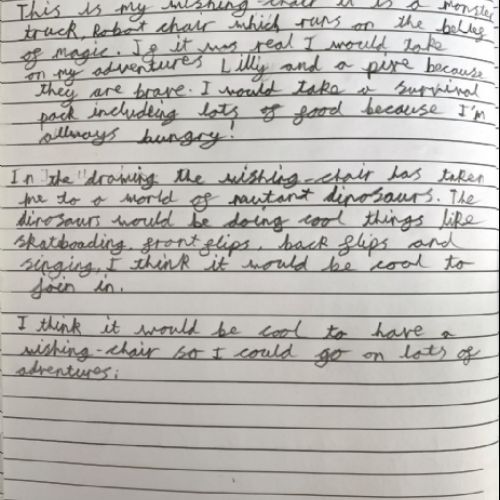 This is my wishing-chair it is a monster
truck, Robot chair which runs on the belleg
of magic. If it was real I would take
on my adventures Lilly and a pire because
they are brave. I would take a survival
pack including lots of food because I'm
allways hungry!
In the drawing the wishing-chair has taken
me to a world of mutant dinosaurs. The
dinosaurs would be doing cool things like
skatboading, front flips, back flips and
singing, I think it would be cool to
join in.
I think it would be cool to have a
wishing-chair so I could go on lots of
adventures;